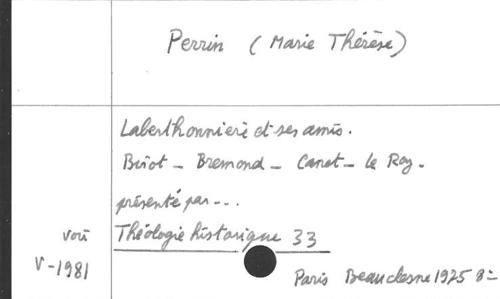 Perrin (Marie Thérèse)
Laberthonnière et ses amis.
Birot - Bremond - Canet - le Roy.
présenté par...
Théologie historique 33
voir
V-1981
Paris Beauchesne 1975 8º